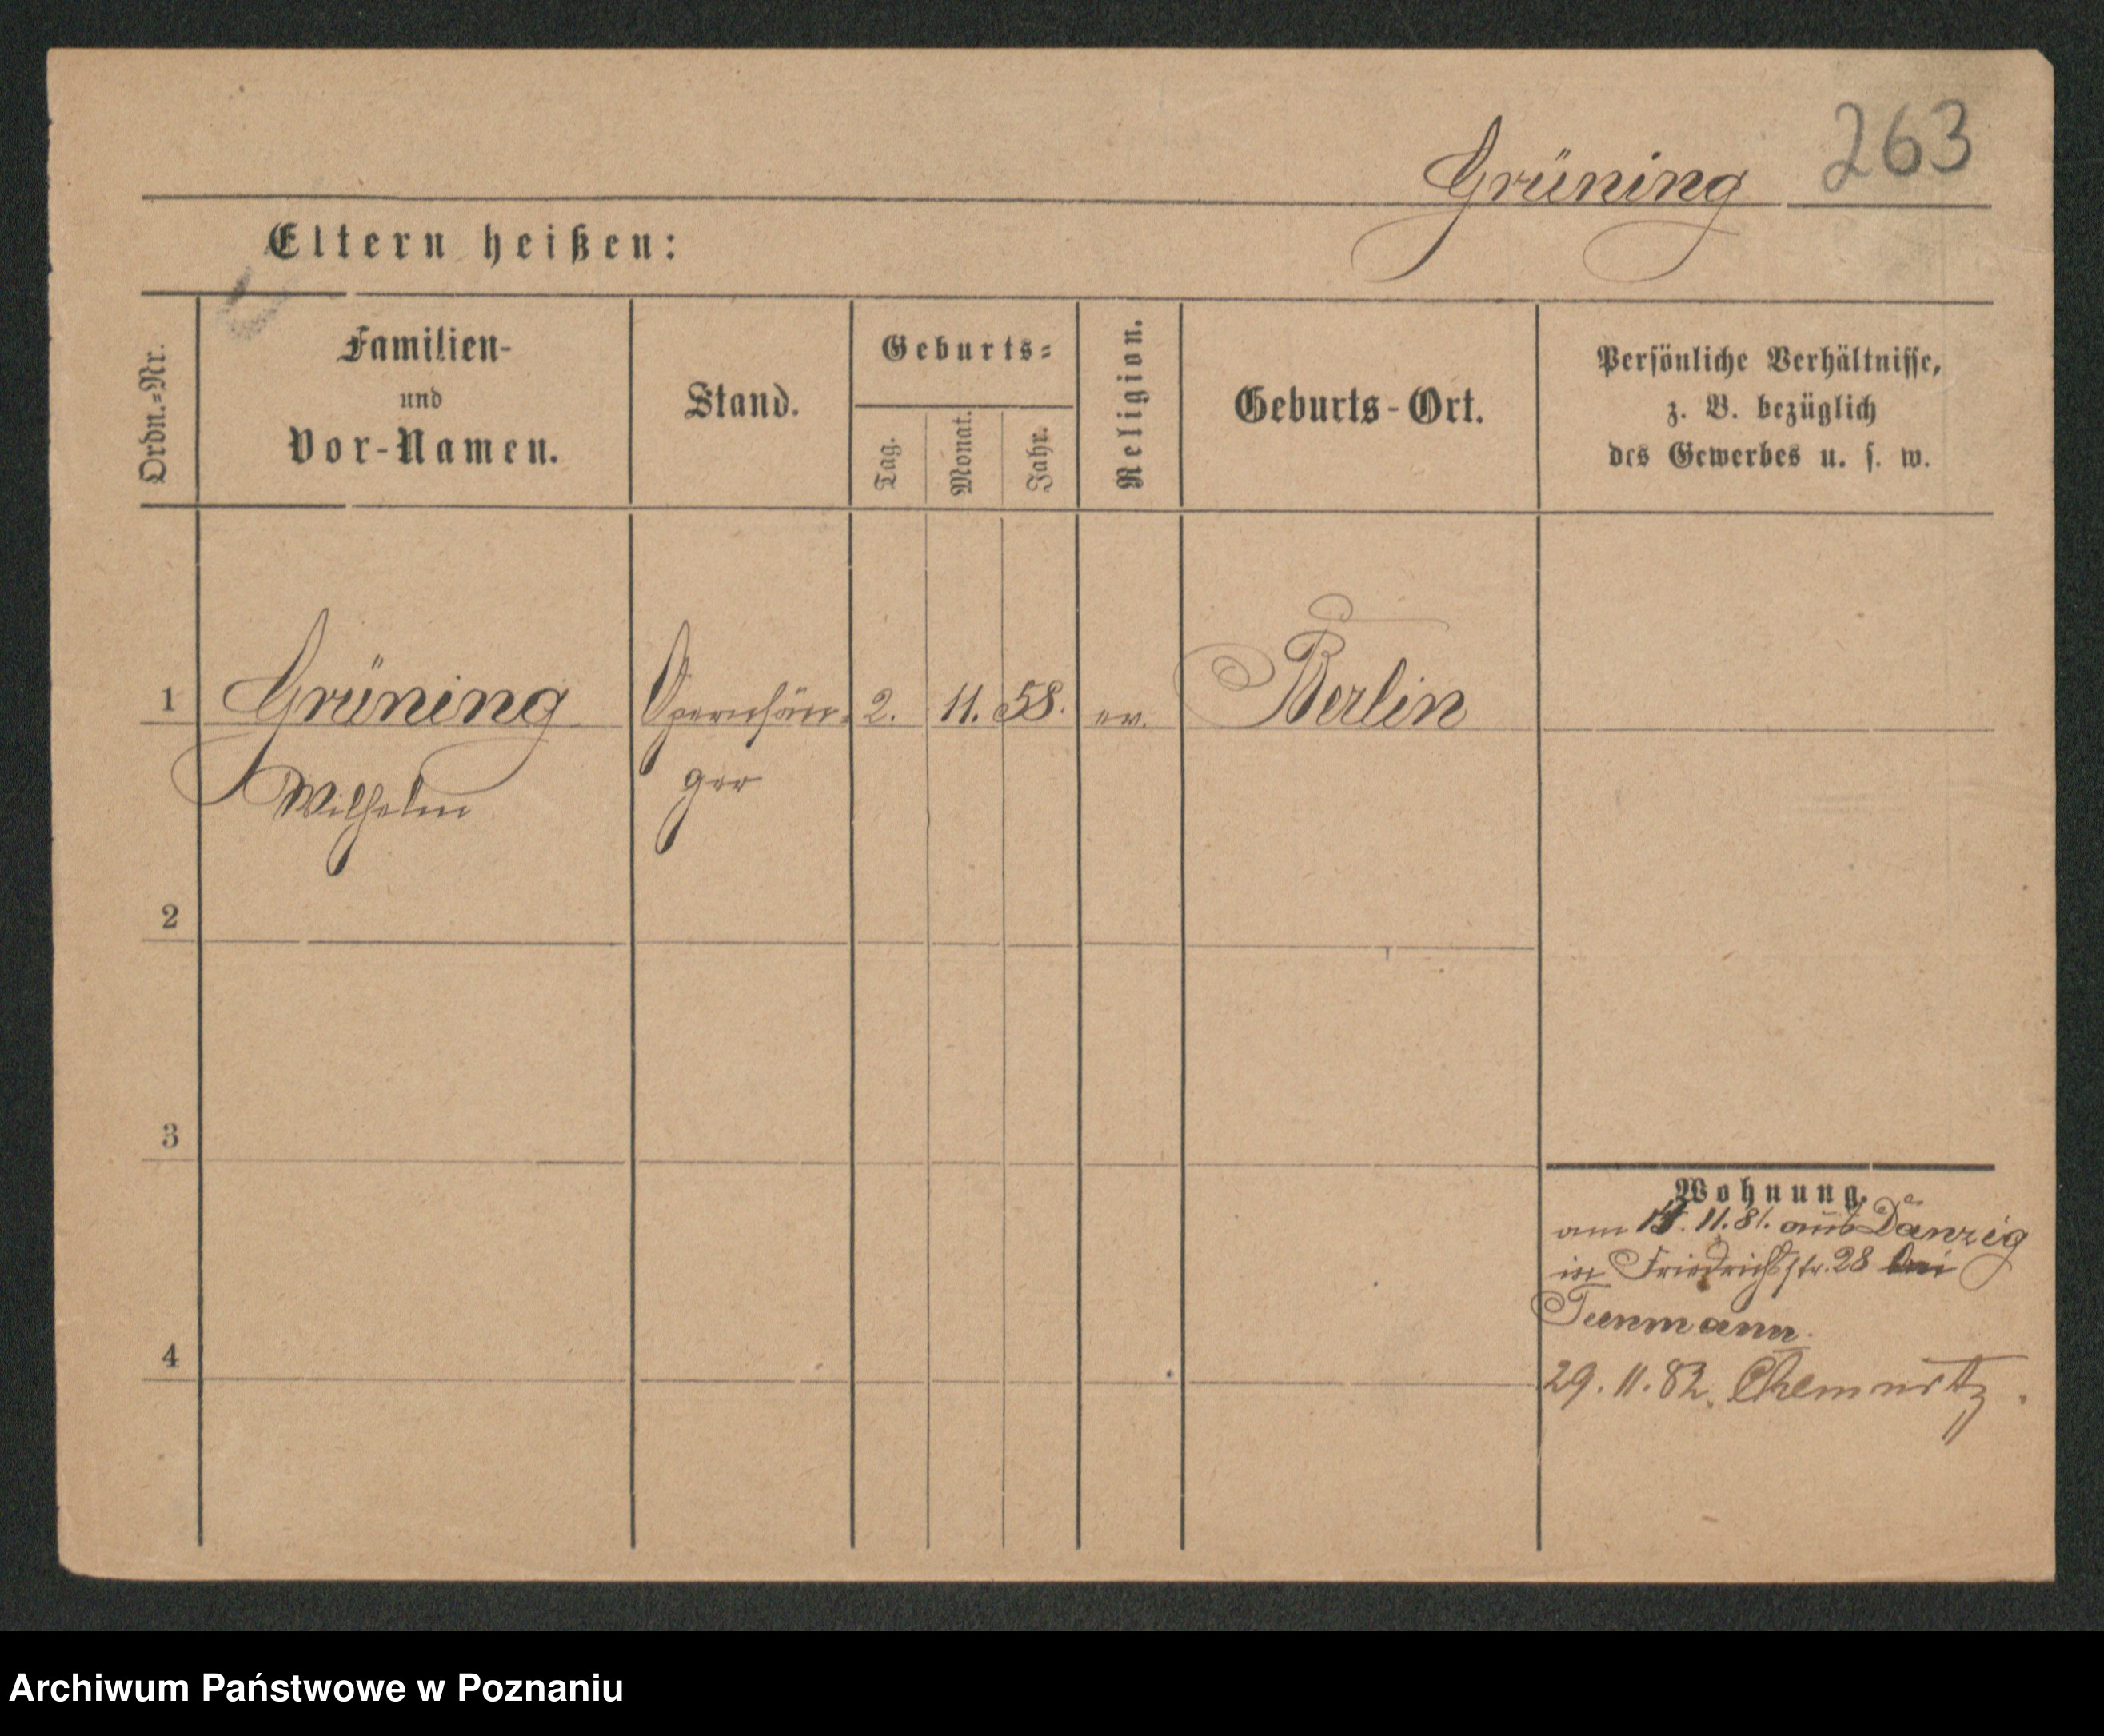 Grüning 263
Eltern heißen:
Ordn.-Nr.
Familien-
und
Vor-Namen.
Stand.
Geburts-
Tag.
Monat.
Jahr.
Religion.
Geburts-Ort.
Persönliche Verhältnisse,
z. B. bezüglich
des Gewerbes u. s. w.
1 Grüning Opernsän- 2. 11. 58. ev. Berlin
Wilhelm ger
2
3
Wohnung.
am 11.81. aus Danzig
in Friedrichstr. 28 bei
4
29.11.82. Chemnitz.
Archiwum Państwowe w Poznaniu